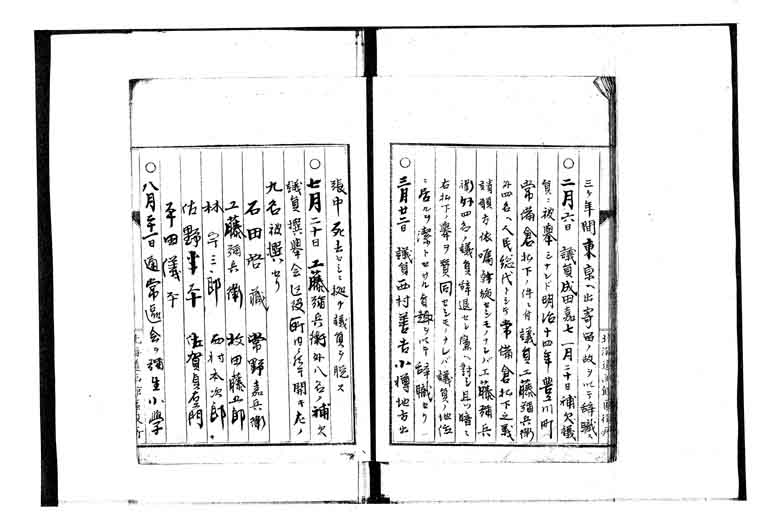 三ヶ年間東京ヘ出寄留ノ故ヲ以テ辞職ス
〇二月六日 議員成田嘉七一月二十日補欠議
員ニ被挙シナレド明治十四年豊川町
常備倉払下ノ件ニ付議員工藤弥兵衛
外四名ヘ人民総代トシテ常備倉払下之義
請願方依嘱斡旋セシモノナレバ工藤弥兵
衛外四名ノ議員辞退セシ廉ヘ対シ且ツ暗ニ
右払下ノ挙ヲ賛同セシモノナレバ議員ノ地位
ニ居ルヲ潔トセザル負趣ヲ以テ辞職セリ
〇三月廿二日 議員西村善吉小樽地方出
張中死去セシニ拠ヲ議員ヲ脱ス
〇七月二十日 工藤弥兵衛外八名ノ補欠
議員撰挙会区役町内ノ於テ開キ左ノ
九名被撰セリ
石田啓蔵 常野嘉兵衛
工藤弥兵衛 牧田藤五郎
林宇三郎 西村本次郎
佐野半平 佐賀貞右エ門
平田儀平
〇八月二十一日通常区会ヲ弥生小学